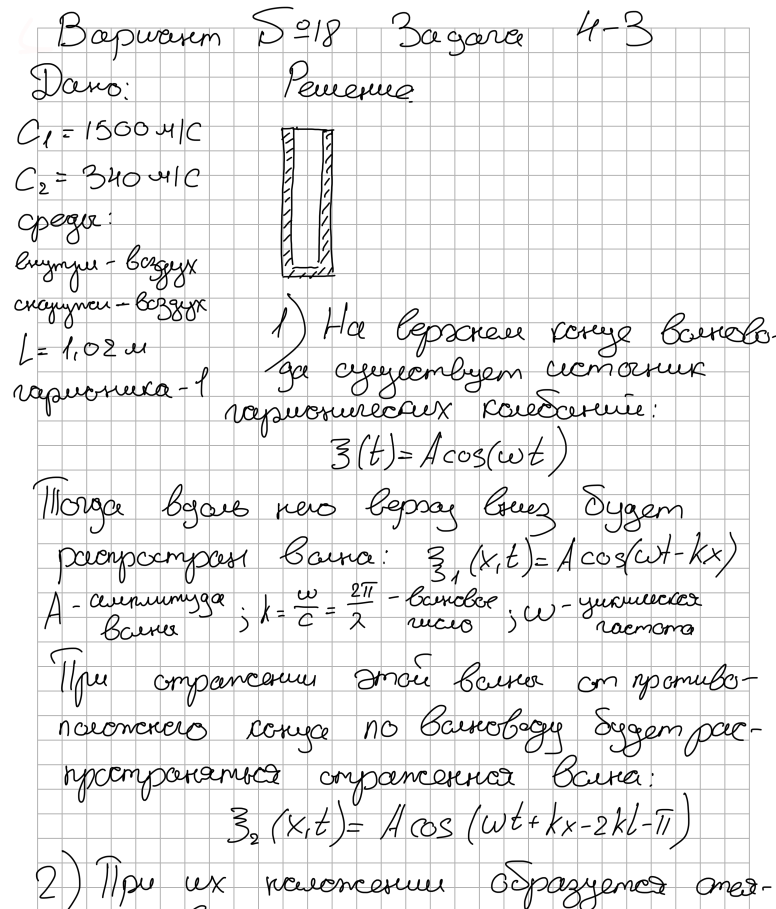 Вариант №18 Задача 4-3
Дано: Решение
C₁ = 1500 м/с
C₂ = 340 м/с
среды:
внутри - воздух
снаружи - воздух
L = 1,02 м
гармоника - 1
1) На верхнем конце волново-
да существует источник
гармонических колебаний:
ξ(t) = A cos(ωt)
Тогда вдоль него верху вниз будет
распростран волна: ξ₁(x,t) = A cos(ωt - kx)
A - амплитуда волны ; k = ω/c = 2π/λ - волновое число ; ω - циклическая частота
При отражении этой волны от противо-
положного конца по волноводу будет рас-
пространяться отраженная волна:
ξ₂(x,t) = A cos(ωt + kx - 2kl - π)
2) При их наложении образуется стоя-